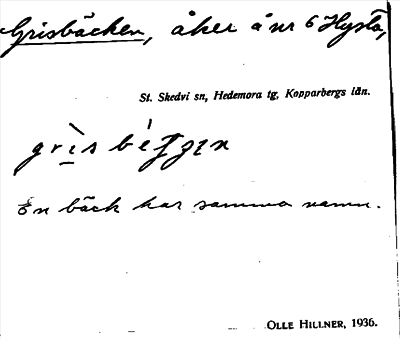 Grisbäcken, åker å nr 6 Hysta,
St. Skedvi sn, Hedemora tg, Kopparbergs län.
En bäck har samma namn.
OLLE HILLNER, 1936.